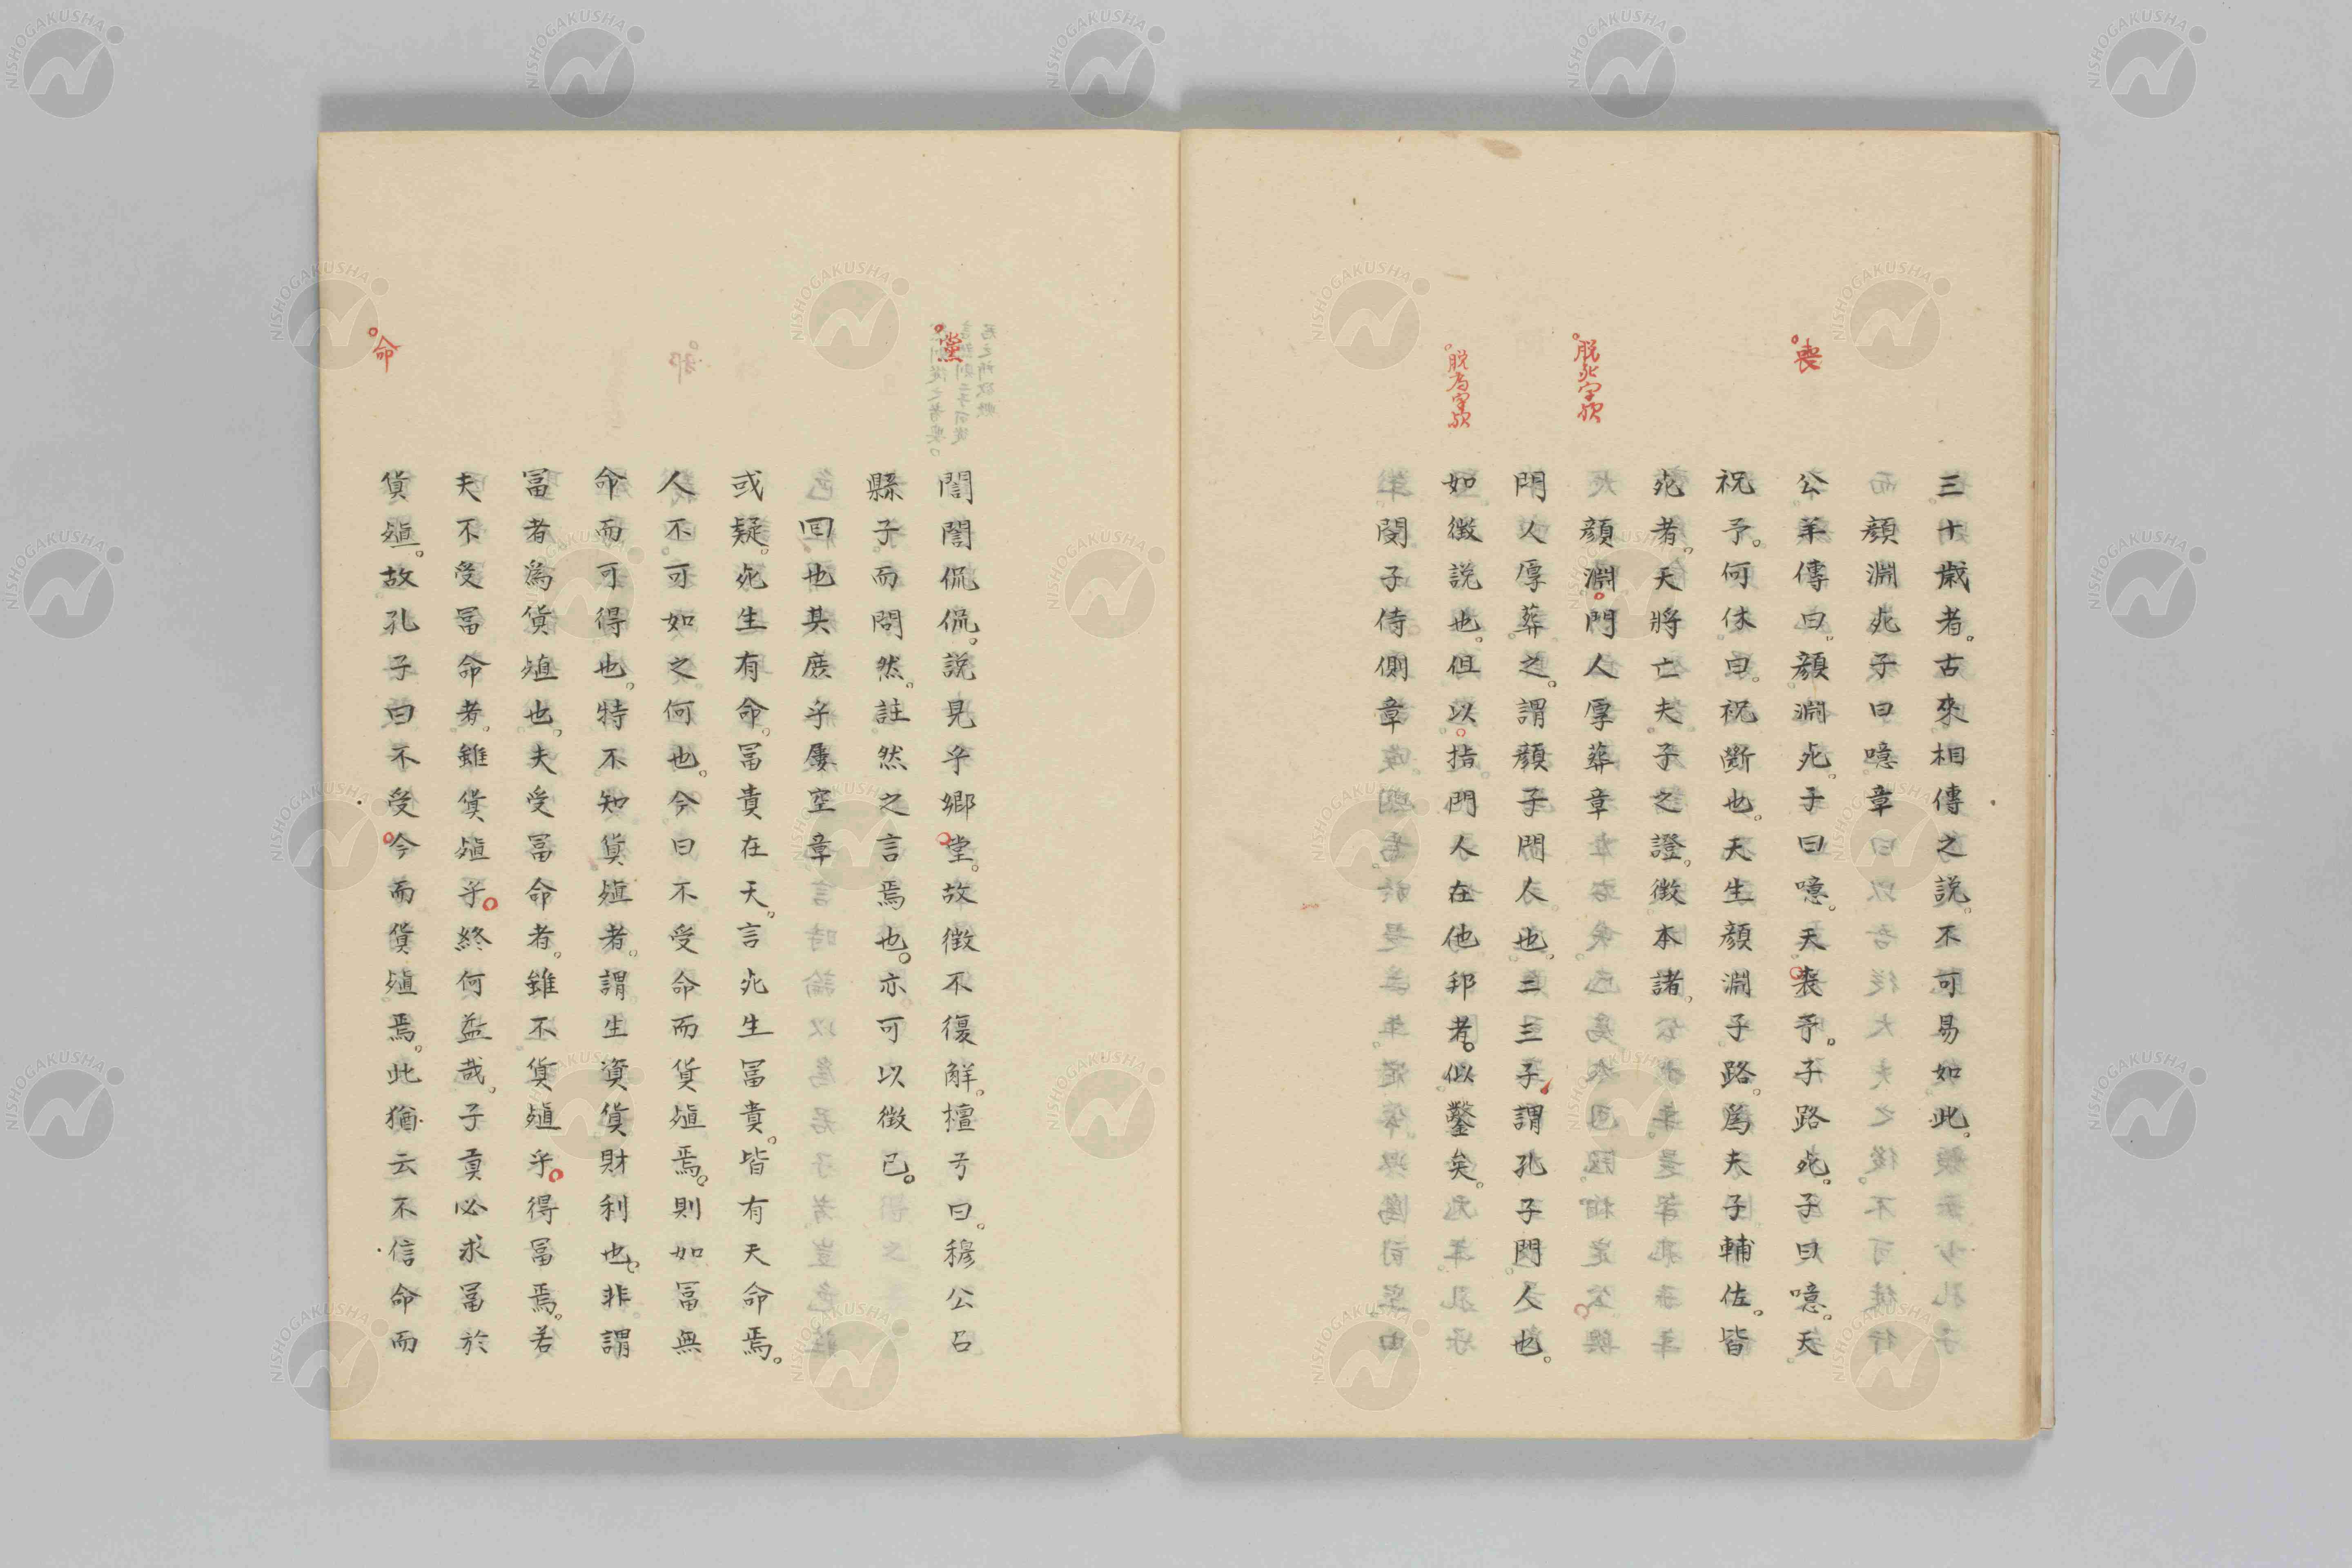 三十歲者。古來相傳之說。不可易如此。
顏淵死子曰噫章
公羊傳曰。顏淵死。子曰噫。天喪予。子路死。子曰噫。天
祝予。何休曰。祝斷也。天生顏淵子路。爲夫子輔佐。皆
死者。天將亡夫子之證。徴本諸。
顏淵門人厚葬章
門人厚葬之。謂顏子門人也。三三子謂孔子門人也。
如徴說也。但以指門人在他邦者。似鑿矣。
閔子侍側章
喪
脫死字歟
脫爲字歟
誾誾侃侃。說見乎鄉堂。故徴不復解。檀弓曰。穆公召
縣子而問然。註然之言焉也。亦可以徴已。
回也其庶乎屢空章
或疑。死生有命。冨貴在天。言死生冨貴。皆有天命焉。
人不可如之何也。今曰不受命而貨殖焉。則如冨無
命而可得也。特不知貨殖者。謂生資貨財利也。非謂
冨者爲貨殖也。夫受冨命者。雖不貨殖乎。得冨焉。若
夫不受冨命者。雖貨殖乎。終何益哉。子貢必求冨於
貨殖。故孔子曰不受今而貨殖焉。此猶云不信命而
黨
命
NISHOGAKUSHA